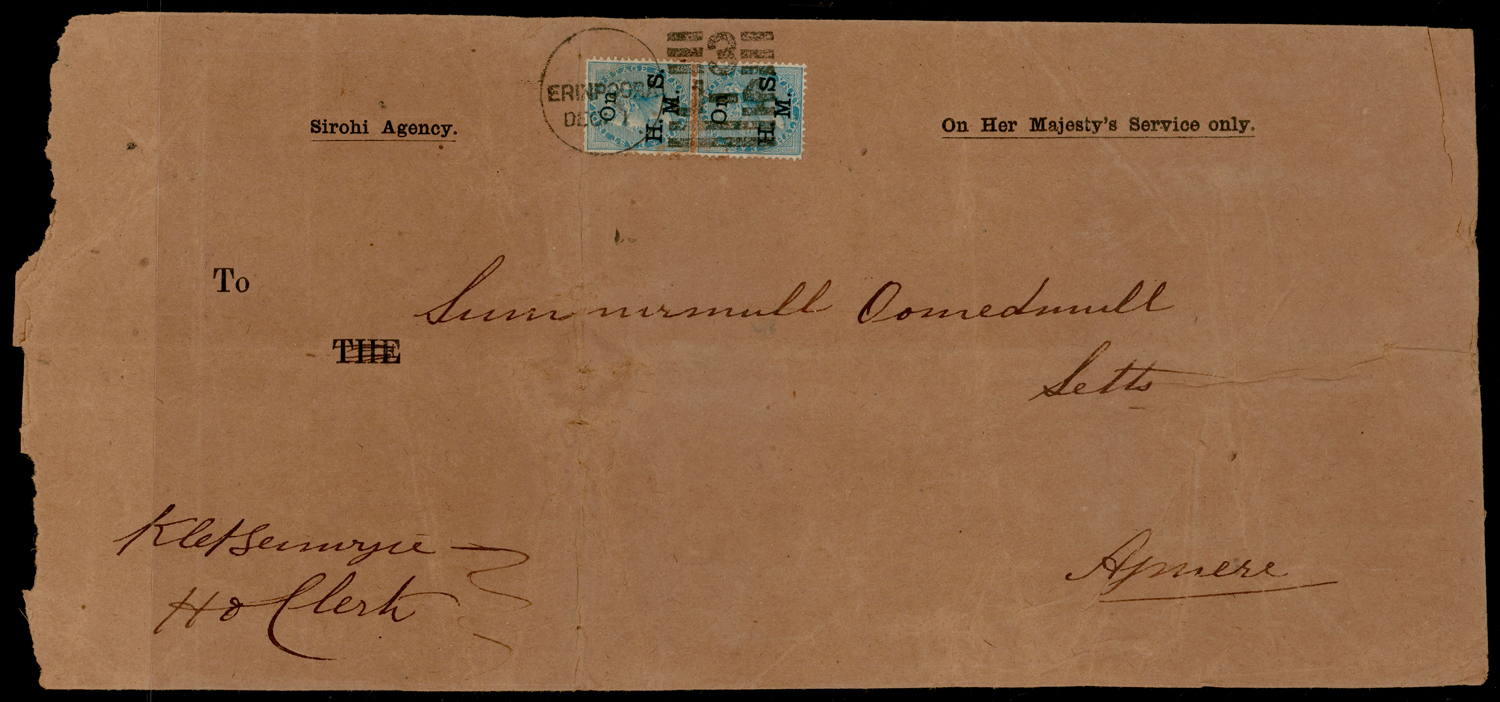 ERINPOORA
DEC 1
3
On
H. M. S.
On
H. M. S.
Sirohi Agency.
On Her Majesty's Service only.
To
THE
Oomedmull
Setts
Ajmere
Hd Clerk